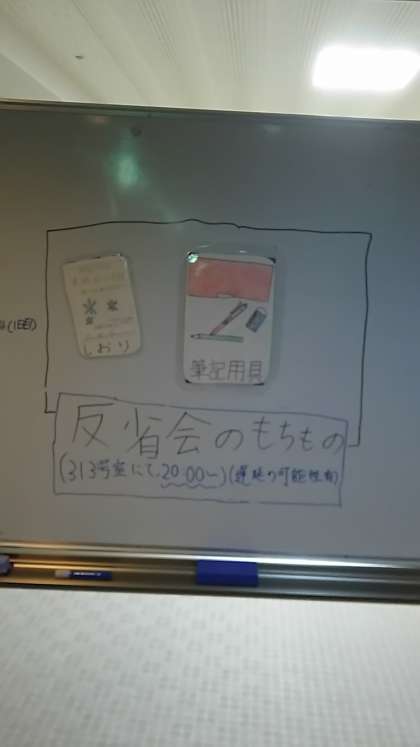 しおり
筆記用具
(1日目)
反省会のもちもの
(313号室にて、20:00〜)(遅延の可能性有)